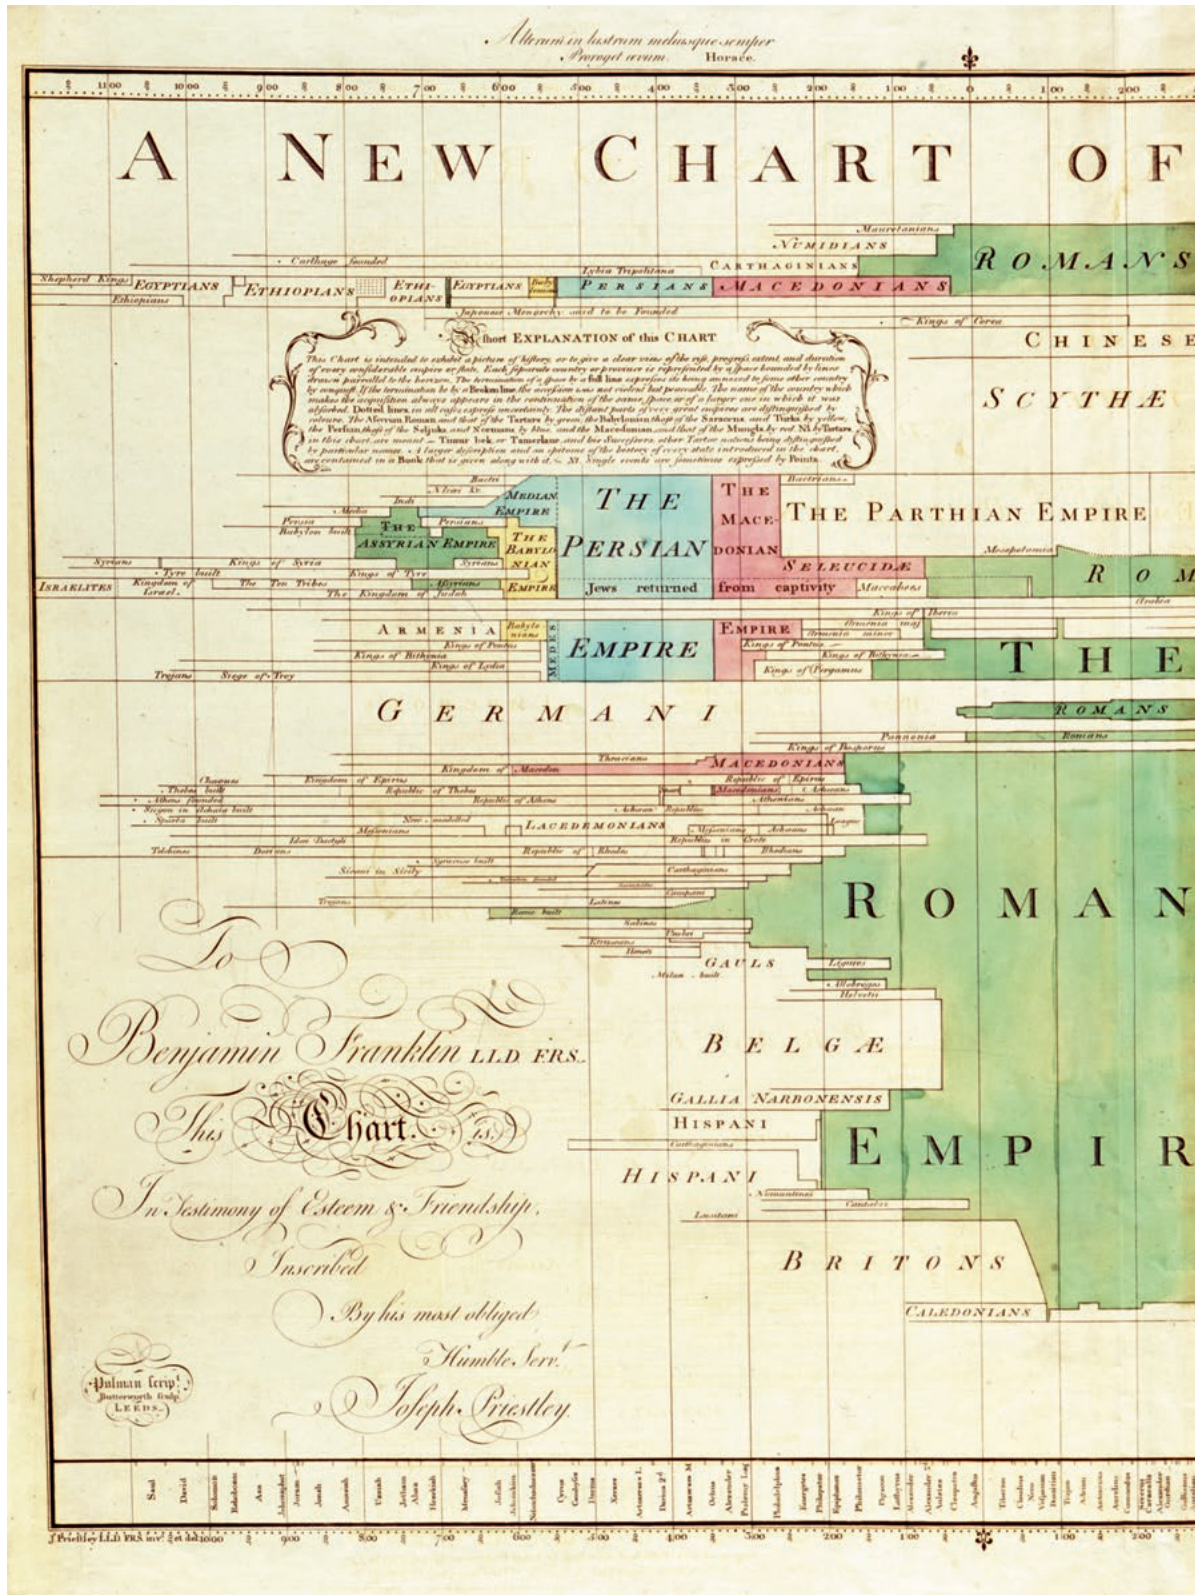 Alterum in lustrum meliusque semper
Proroget ævum. Horace.
1100 1000 900 800 700 600 500 400 300 200 100 0 100 200
A NEW CHART OF
Mauretanians
NUMIDIANS
ROMANS
Carthage founded
CARTHAGINIANS
Lybia Tripolitana
Shepherd Kings
EGYPTIANS
ETHIOPIANS
ETHIOPIANS
EGYPTIANS
PERSIANS
MACEDONIANS
Ethiopians
Japonese Monarchy said to be Founded
Kings of Corea
A short EXPLANATION of this CHART
CHINESE
This Chart is intended to exhibit a picture of history, or to give a clear view of the rise, progress, extent, and duration
of every considerable empire or state. Each separate country or province is represented by a space bounded by lines
drawn parrallel to the horizon. The termination of a space by a full line expresses its being annexed to some other country
by conquest. If the termination be by a Broken line, the accession is not violent but peaceable. The name of the country which
makes the acquisition always appears in the continuation of the same space, or of a larger one in which it was
absorbed. Dotted lines, in all cases express uncertainty. The distant parts of very great empires are distinguished by
colours. The Assyrian Roman and that of the Tartars by green, the Babylonian those of the Saracens, and Turks by yellow,
the Persian those of the Seljuks and Normans by blue, and the Macedonian, and that of the Mungls by red. NB by Tartars
in this chart, are meant Timur bek, or Tamerlane, and his Successors, other Tartar nations being distinguished
by particular names. A larger description and an epitome of the history of every state introduced in the chart,
are contained in a Book that is given along with it. NB. Single events are sometimes expressed by Points.
SCYTHÆ
Bactri
Bactrians
MEDIAN
EMPIRE
THE
PERSIAN
THE
MACE-
DONIAN
THE PARTHIAN EMPIRE
Indi
Media
Persia
Persians
Babylon built
THE
ASSYRIAN EMPIRE
THE
BABYLO
NIAN
EMPIRE
Mesopotamia
Syrians
Kings of Syria
Syrians
SELEUCIDÆ
ROM
Tyre built
Kings of Tyre
ISRAELITES
Kingdom of
Israel.
The Ten Tribes
Assyrians
The Kingdom of Judah
Jews returned from captivity
Maccabees
Arabia
Kings of Iberia
ARMENIA
Babylo
nians
MEDES
EMPIRE
EMPIRE
Armenia maj
Armenia minor
Kings of Pontus
Kings of Pontus
Kings of Bithynia
Kings of Bithynia
Kings of Lydia
Kings of Pergamus
THE
Trojans
Siege of Troy
GERMANI
ROMANS
Pannonia
Romans
Kings of Bosporus
Thracians
Kingdom of Macedon
MACEDONIANS
Kingdom of Epirus
Republic of Epirus
Thebes built
Republic of Thebes
Macedonians
Achæans
Athens founded
Republic of Athens
Athenians
Achæan Republics
Achæan
League
Sparta built
New modelled
LACEDEMONIANS
Messenians
Messenians
Achæans
Idæi Dactyli
Republics in Crete
Telchines
Dorians
Republic of Rhodes
Rhodians
Syracuse built
Sicani in Sicily
Carthaginians
Campani
Trojans
Latines
Rome built
Sabines
Etruscans
ROMAN
GAULS
Ligures
Milan built
Allobroges
Helvetii
BELGÆ
GALLIA NARBONENSIS
HISPANI
Carthaginians
HISPANI
Numantines
Cantabri
Lusitani
EMPIR
BRITONS
CALEDONIANS
To
Benjamin Franklin LLD. FRS.
This Chart is,
In Testimony of Esteem & Friendship,
Inscribed
By his most obliged
Humble Serv.t
Joseph Priestley.
Pulman scrip.t
Butterworth sculp.
LEEDS.
Saul
David
Solomon
Rehoboam
Asa
Jehoshaphat
Joram
Joash
Amaziah
Uzziah
Jotham
Ahaz
Hezekiah
Manasseh
Josiah
Jehoiakim
Nebuchadnezzar
Cyrus
Cambyses
Darius
Xerxes
Artaxerxes L
Darius 2d
Artaxerxes M
Ochus
Alexander
Ptolemy Lag
Philadelphus
Euergetes
Philopator
Epiphanes
Philometor
Physcon
Lathyrus
Alexander
Alexander 2d
Auletes
Cleopatra
Augustus
Tiberius
Claudius
Nero
Vespasian
Domitian
Trajan
Adrian
Antoninus
Aurelius
Commodus
Severus
Caracalla
Alexander
Gordian
J Priestley LLD. FRS. inv.t et del.
1000 900 800 700 600 500 400 300 200 100 0 100 200